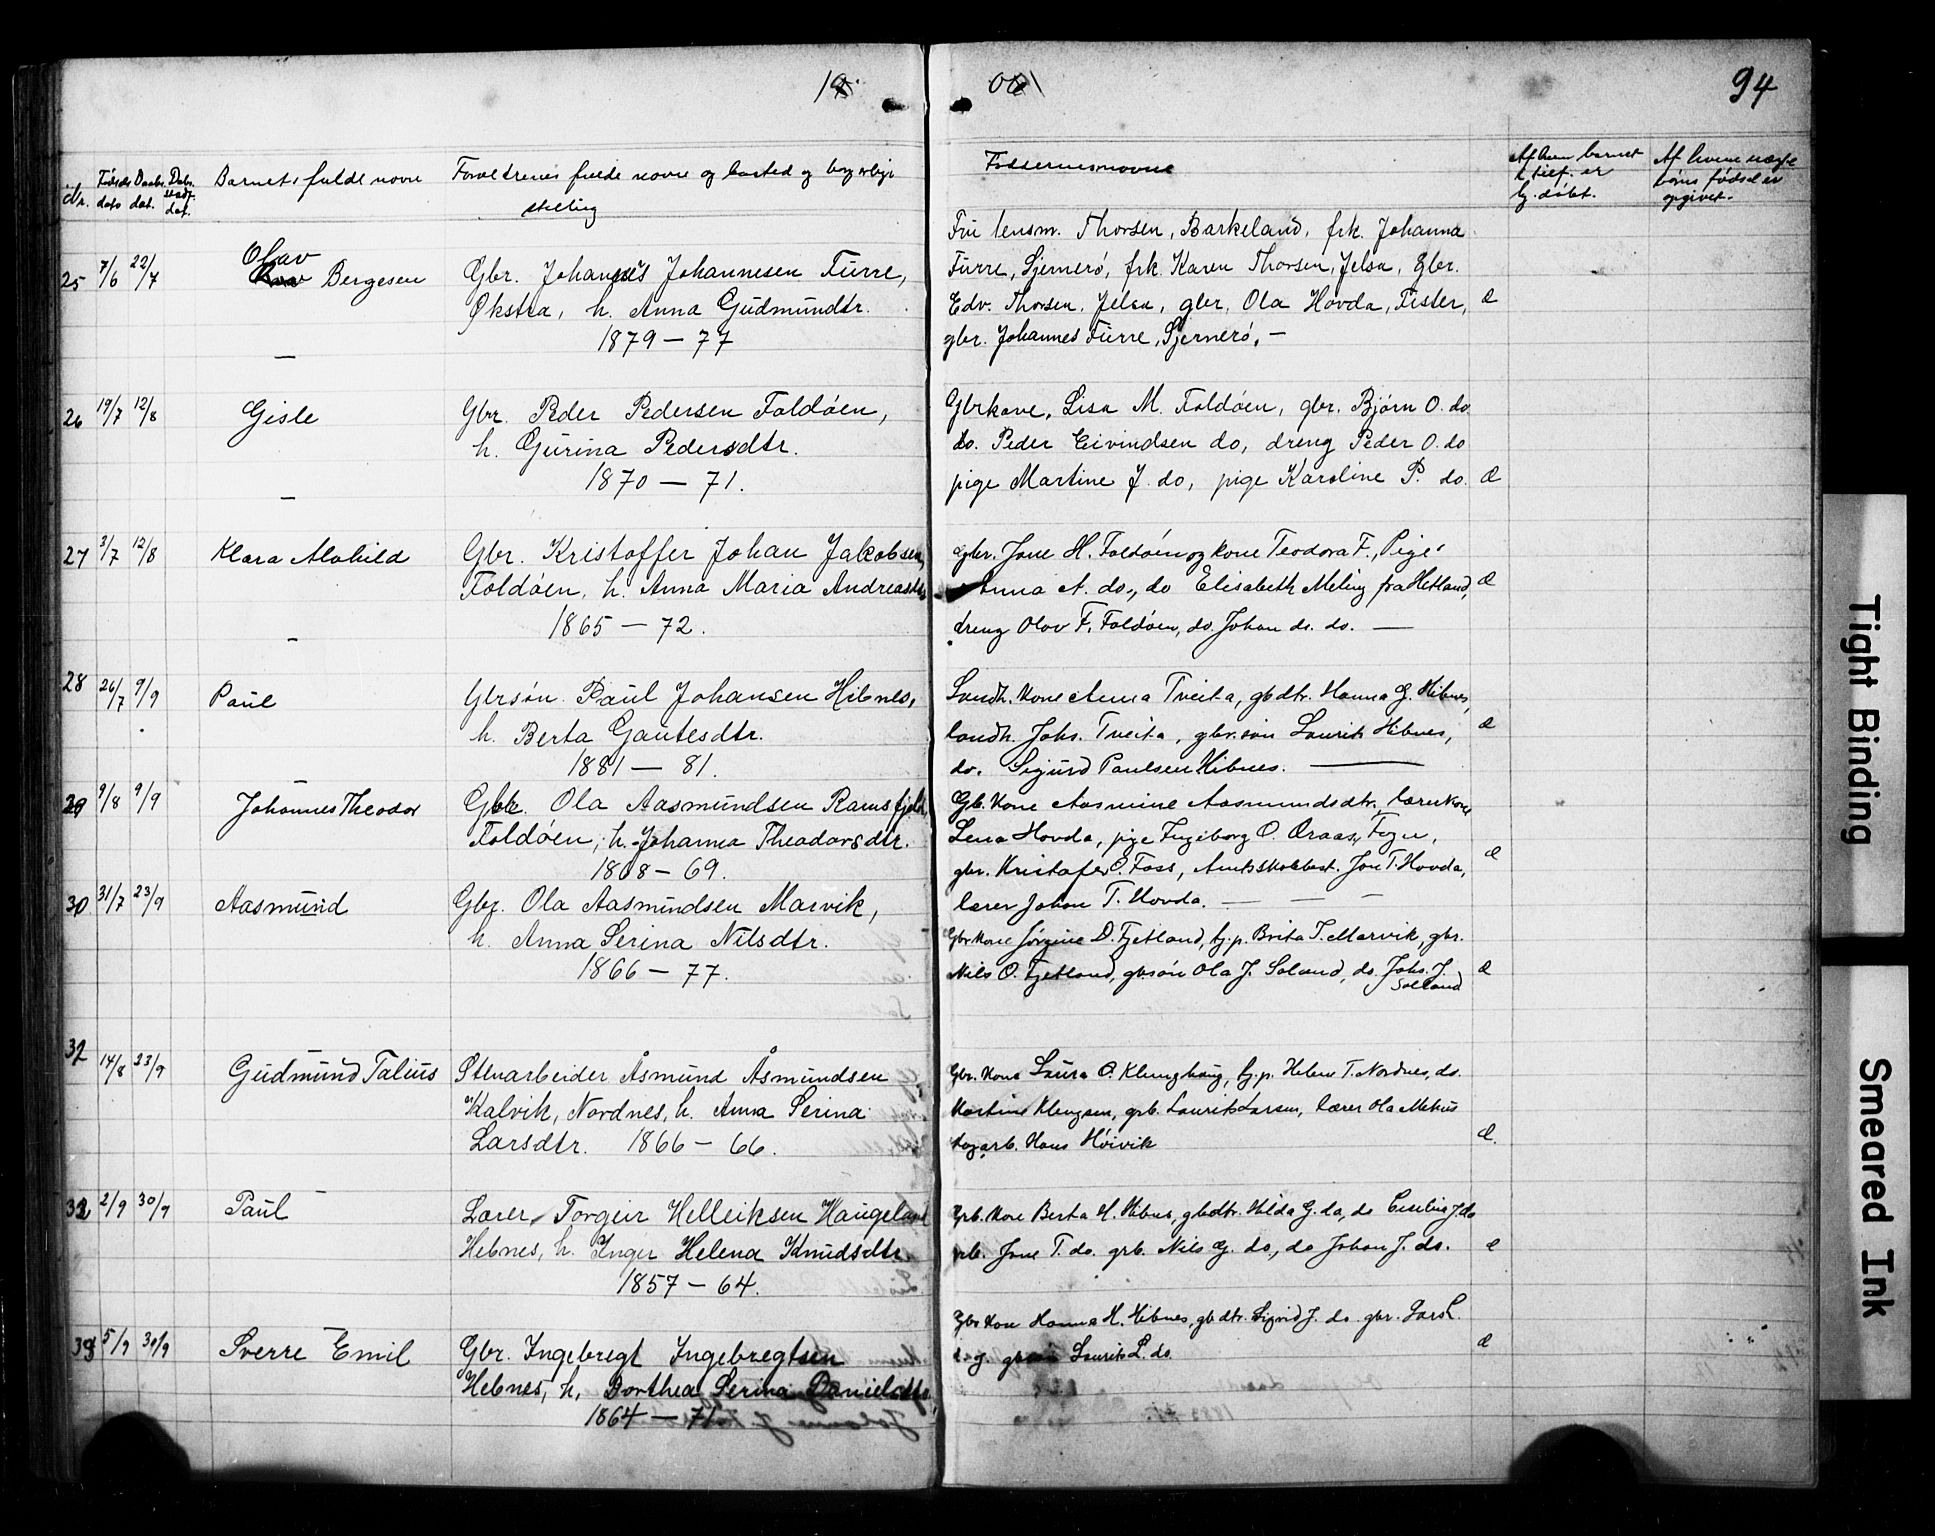 19 001
94
Nr. Fødsels dato Daabs dat. Daabs stadf. dat. Barnets fulde navn Forældrenes fulde navne og bosted og borgerlige stilling
Faddernes navne
Af hvem barnet hj. døbt.
Af hvem fødsel er opgivet.
25 7/6 22/7 Olav Bergesen
Gbr. Johannes Johannesen Furre,
Økstra, h. Anna Gudmundtr.
1879 — 77
Fru lensm. Thorsen, Barkeland, frk. Johanna
Furre, Sjernerö, frk. Karen Thorsen, Jelsa, gbr.
Edv. Thorsen, Jelsa, gbr. Ola Hovda, Fister,
gbr. Johannes Furre, Sjernerö, —
26 19/7 12/8 Gisle
Gbr. Peder Pedersen Foldöen,
h. Gurina Pedersdtr.
1870 — 71.
Gbrkone, Lisa M. Foldöen, gbr. Björn O. do
do. Peder Eivindsen do, dreng Peder O. do
pige Martine J. do, pige Karoline P. do.
27 3/7 12/8 Klara Alvhild
Gbr. Kristoffer Johan Jakobsen,
Foldöen, h. Anna Maria Andreasdtr
1865 — 72.
Gbr. Jone H. Foldöen og kone Teodora F., Pige
Anna A. do., do Elisabeth Meling fra Hetland,
dreng Olov F. Foldöen, do. Johan do. do. —
28 26/7 9/9 Paul
Gbrsön Paul Johansen Hibnes,
h. Berta Gautesdtr.
1881 — 81.
Landh. kone Anna Tveita, gbdtr. Hanna G. Hibnes,
landh. Johs. Tveita, gbr.sön Laurits Hibnes,
do. Sigurd Paulsen Hibnes. —
29 9/8 9/9 Johannes Theodor
Gbr. Ola Aasmundsen Ramsfjeld,
Foldöen, h. Johanna Theodorsdtr.
1868 — 69.
Gb. kone Aasmine Aasmundsdtr, lærerkone
Lena Hovda, pige Ingeborg O. Fogn,
gbr. Kristofer O. Foss, Amtsskolebest. Jon T. Hovda,
lærer Johan T. Hovda. — — —
30 31/7 23/9 Aasmund
Gbr. Ola Aasmundsen Marvik,
h. Anna Serina Nilsdtr.
1866 — 77.
Gbr kone Jörgine D. Fjetland, tj.p. Brita T. Marvik, gbr.
Nils O. Fjetland, gbsön Ola J. Soland, do. Johs. J.
Solland
14/8 23/9 Gudmund Talius
Stenarbeider Åsmund Åsmundsen
Kalvik, Nordnes, h. Anna Serina
Larsdtr. 1866 — 66.
Gbr. kone Laura O. Klunghaug, tj.p. Helene T. Nordnes, do.
Martine Klengsen, grb. Laurits Larsen, lærer Ola Mehus
dagarb. Hans Höivik
32 2/9 30/9 Paul
Lærer Torgeir Helleiksen Haugeland
Hebnes, h. Inger Helena Knudsdtr.
1857 — 64.
Grb. kone Berta H. Hibnes, gbdtr. Hilda G. do, do Cecilie J. do
grb. Jone T. do. grb. Nils G. do., do Johan J. do.
33 5/9 30/9 Sverre Emil
Gbr. Ingebregt Ingebregtsen
Hebnes, h. Dorthea Serina Danielsdtr,
1864 — 71
Gbr kone Hanna H. Hibnes, gbdtr. Sigrid J. do. gbr. Lars L.
Laurits L. do.
Tight Binding
Smeared Ink